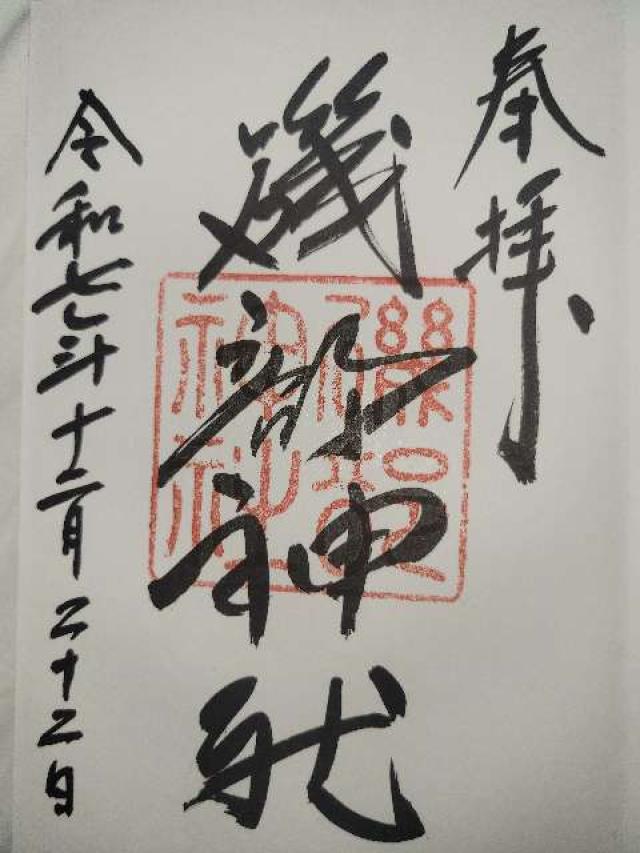 奉拝
磯部神社
令和七年十二月二十二日
磯部
神社